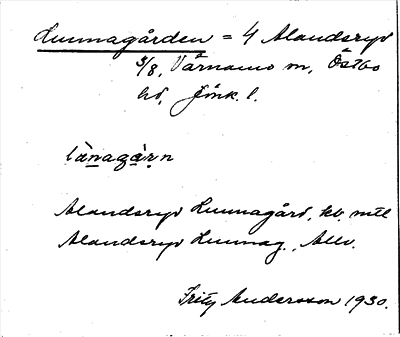 Lunnagården = 4 Alandsryd
3/8, Värnamo sn, Östbo
hd, Jönk. l.
lànagàrn
Alandsryd Lunnagård, kb. mtl
Alandsryd Lunnag., Allv.
Fritz Andersson 1930.